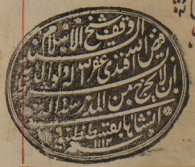 الاوقف شيخ الاسلام
فيض الله افندى غفر الله له ولوالديه
بشرط ان لا يخرج من المدرسة التى
انشاها بقسطنطينية
١١١٣